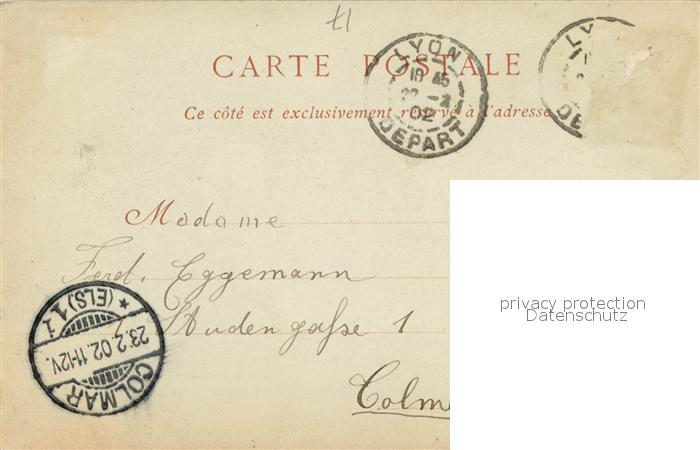 CARTE POSTALE
Ce côté est exclusivement réservé à l'adresse
LYON
18 45
02
DEPART
LY
DE
Madame
Ferd. Eggemann
gasse 1
Colm
COLMAR
(ELS.) 1
23.2.02.11-12V.
privacy protection
Datenschutz